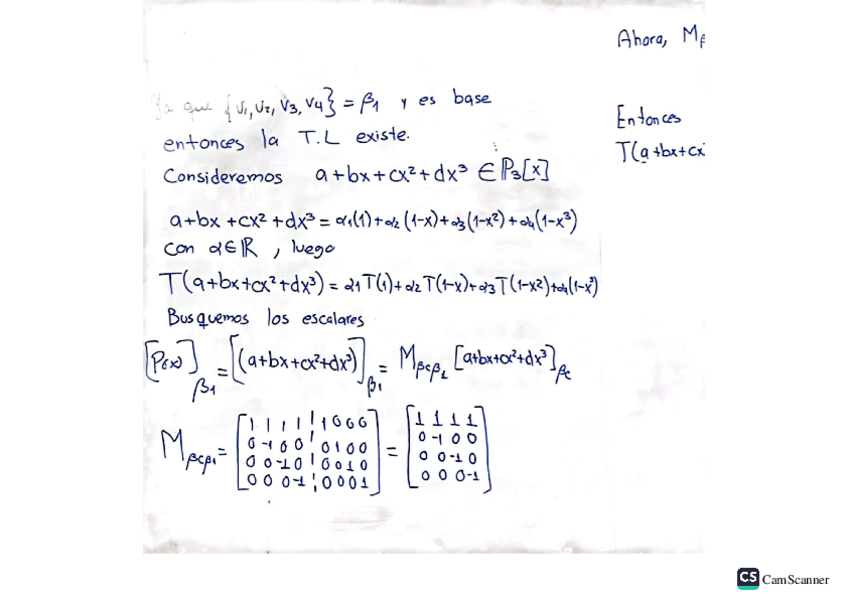 Ya que {v₁, v₂, v₃, v₄} = β₁ y es base
entonces la T.L existe.
Consideremos a+bx+cx²+dx³ ∈ P₃[x]
a+bx+cx²+dx³ = α₁(1)+α₂(1-x)+α₃(1-x²)+α₄(1-x³)
con α∈ℝ, luego
T(a+bx+cx²+dx³) = α₁T(1)+α₂T(1-x)+α₃T(1-x²)+α₄(1-x³)
Busquemos los escalares
[P(x)]β₁ = [(a+bx+cx²+dx³)]β₁ = Mβcβ₁ [a+bx+cx²+dx³]βc
Mβcβ₁ = [1 1 1 1 ¦ 1 0 0 0
0 -1 0 0 ¦ 0 1 0 0
0 0 -1 0 ¦ 0 0 1 0
0 0 0 -1 ¦ 0 0 0 1] = [1 1 1 1
0 -1 0 0
0 0 -1 0
0 0 0 -1]
Ahora, Mβ
Entonces
T(a+bx+cx
CS CamScanner